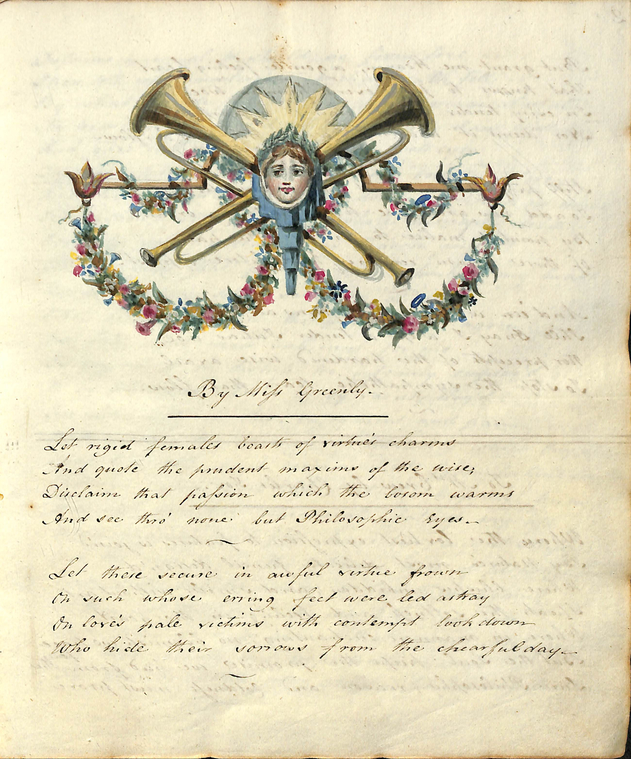 By Miss Greenly.
Let rigid females boast of virtue's charms
And quote the prudent maxims of the wise,
Disclaim that passion which the bosom warms
And see thro' none but Philosophic Eyes.
Let these secure in awful virtue frown
On such whose erring feet were led astray
On love's pale victims with contempt look down
Who hide their sorrows from the chearful day.